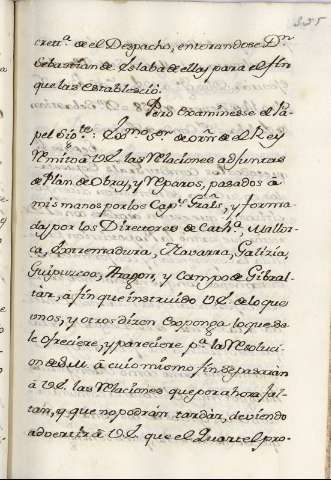 355
creta. de el Despacho, enterandose Dn.
Sebastian de Islaba de ellos para el fin
que las estableció.
Pero examinesse el Pa-
pel sigte.: Exmo. Sor. de orñ de el Rey
remito a V.E. las Relaciones adjuntas
de Plan de Obras, y Reparos, pasados à
mis manos por los Caps. Grals., y forma-
das por los Directores de Cathª. Mallor-
ca, Extremadura, Navarra, Galizia,
Guipuzcoa, Aragon, y Campo de Gibral-
tàr, a fin que instruido V.E. de lo que
unos, y otros dizen exponga lo que se
le ofreciere, y pareciere pª. la Resoluci-
on de S.M. à cuio mismo fin se pasaràn
à V.E. las Relaciones que por ahora fal-
tan, y que no podràn tardàr, deviendo
advertir à V.E. que el Quartel pro-